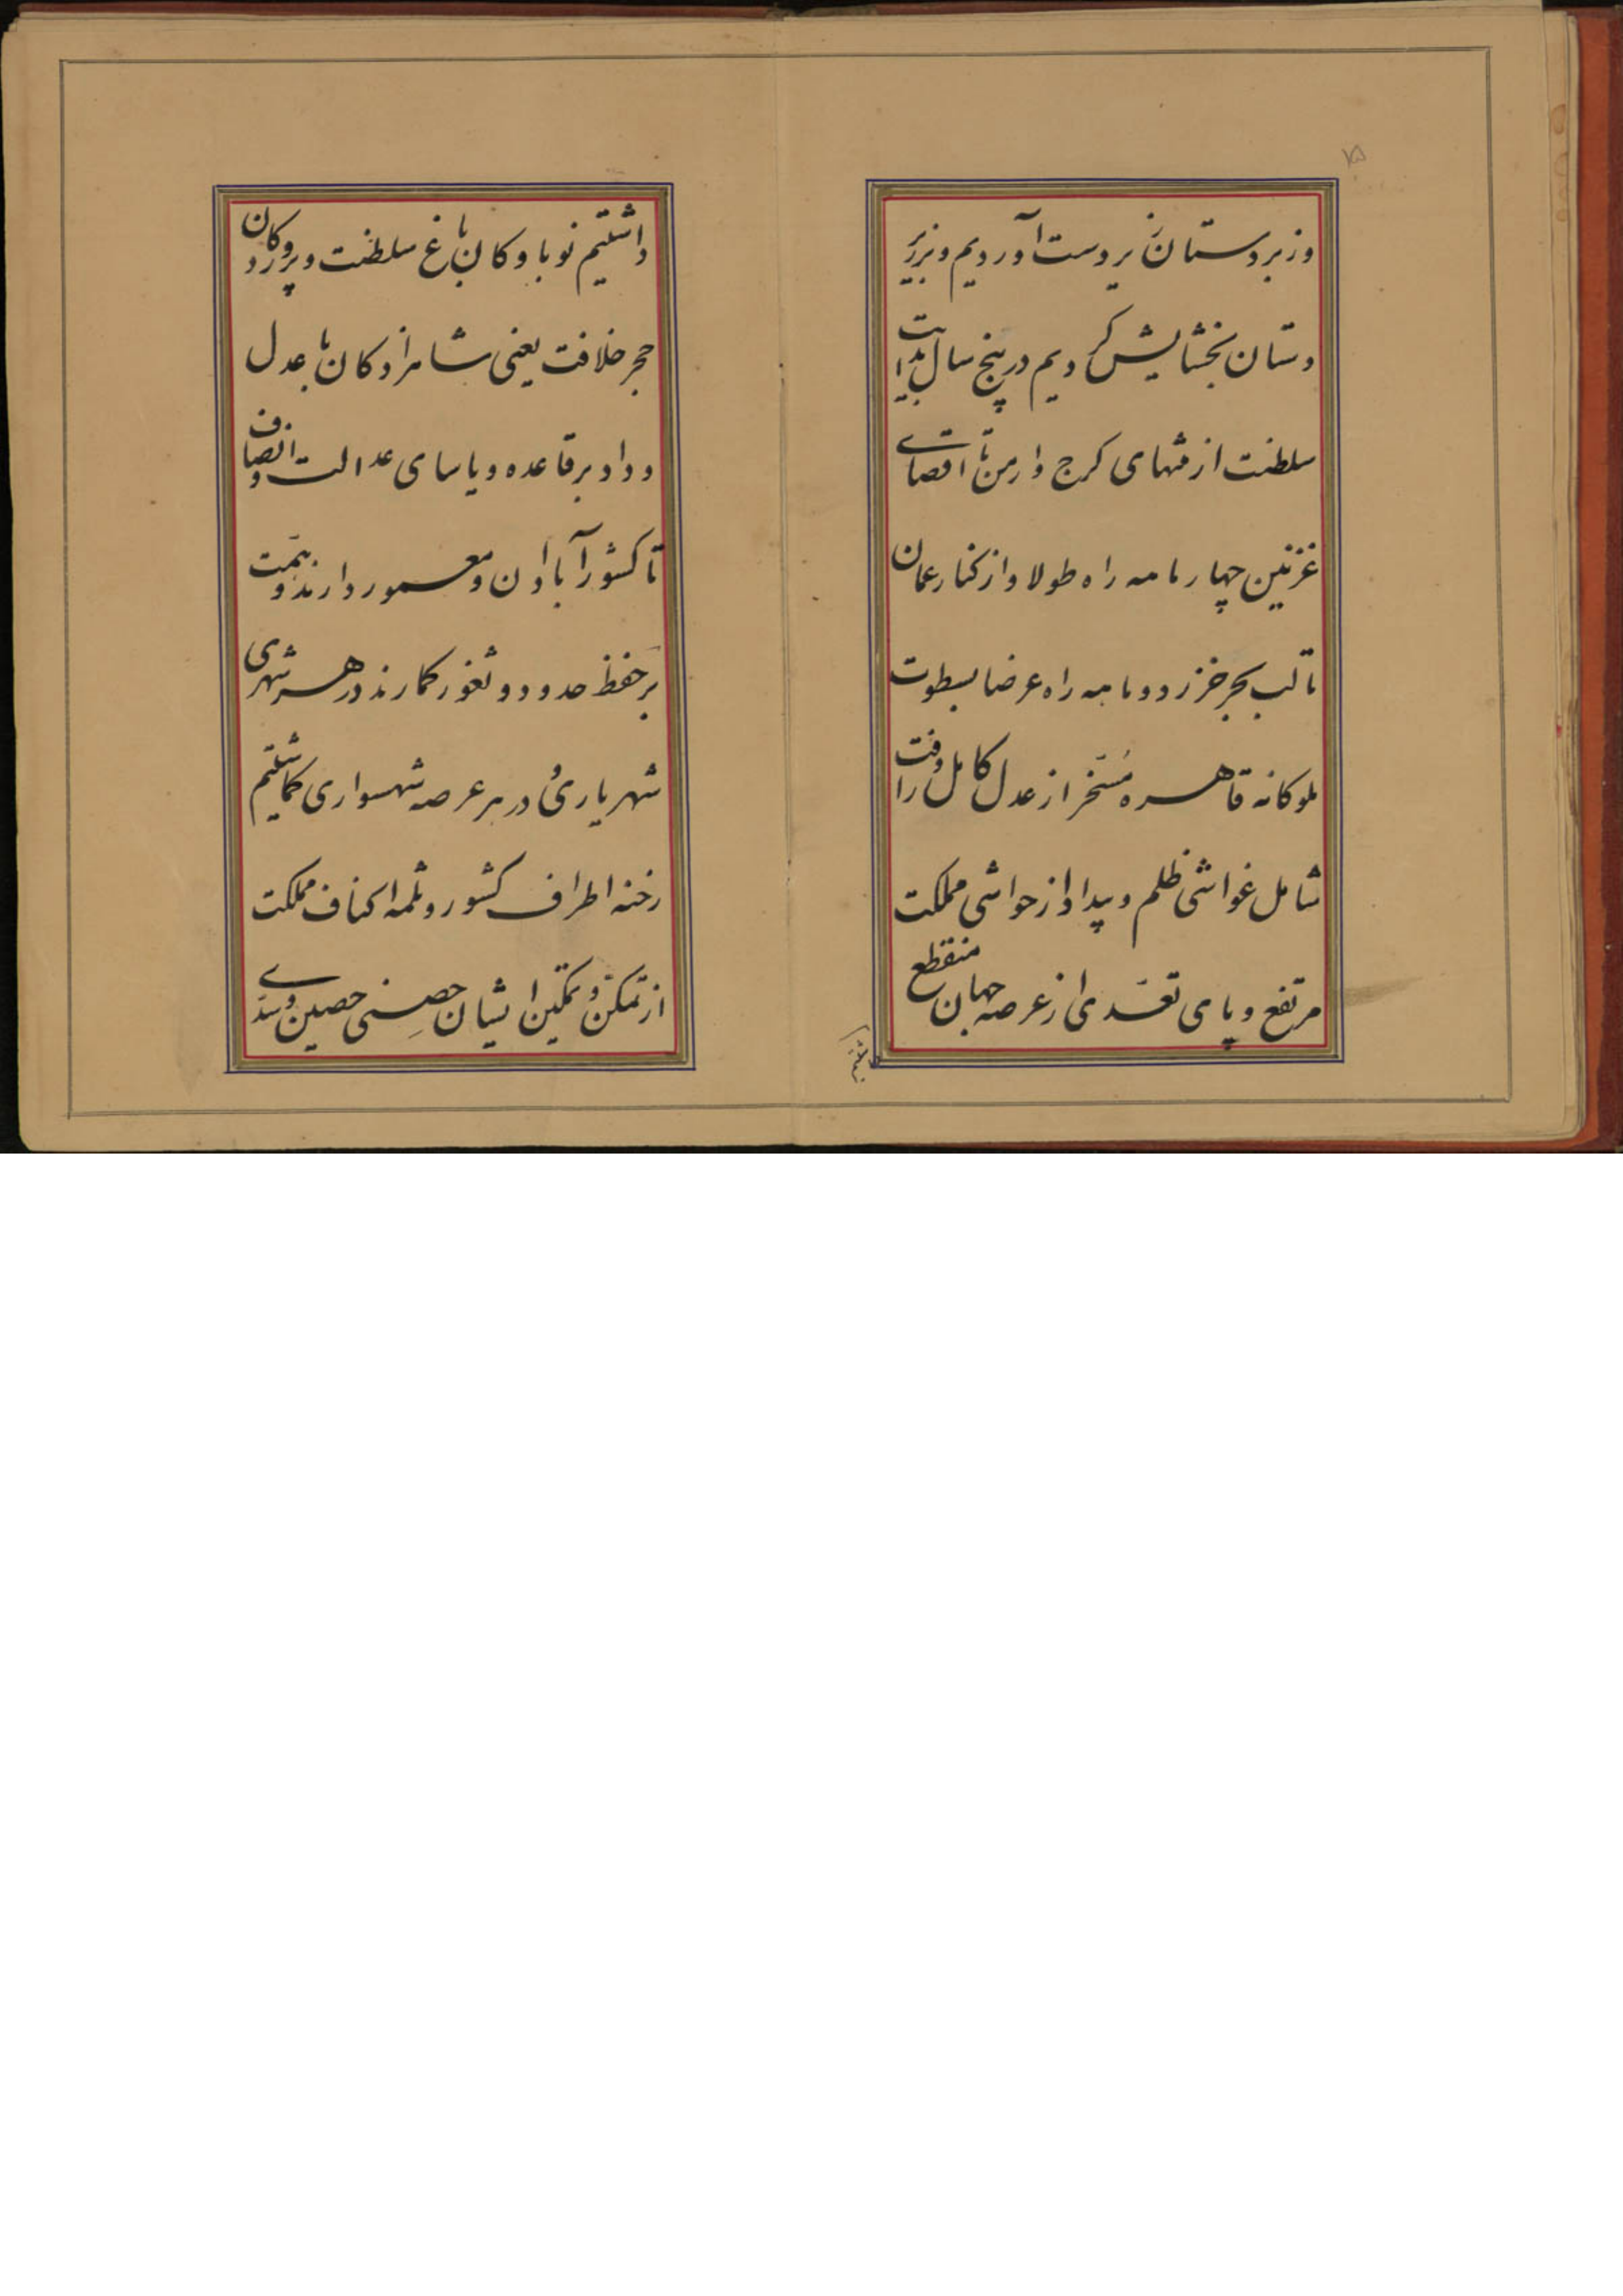 ۱۵
وزبردستان زیردست آوردیم و بزیر
دستان بخشایش کردیم در پنج سال بدایت
سلطنت از منتهای کرج وارمن تا اقصای
غزنین چهار ماهه راه طولا و از کنار عمان
تا لب بحر خزر دو ماهه راه عرضا بسطوت
ملوکانه قاهره مسخر از عدل کامل و رافت
شامل غواشی ظلم و بیداد از حواشی مملکت
مرتفع و پای تعدی از عرصه جهان منقطع
داشتیم
داشتیم نوباوکان باغ سلطنت و پروردکان
حجر خلافت یعنی شاهزادکان با عدل
و داد بر قاعده و یاسای عدالت و انصاف
تا کشور آبادان و معمور دارند و همت
بر حفظ حدود و ثغور کمارند در هر شهری
شهریاری و در هر عرصه شهسواری کماشتیم
رخنه اطراف کشور و ثلمه اکناف مملکت
از تمکن و تمکین ایشان حصنی حصین و سدی